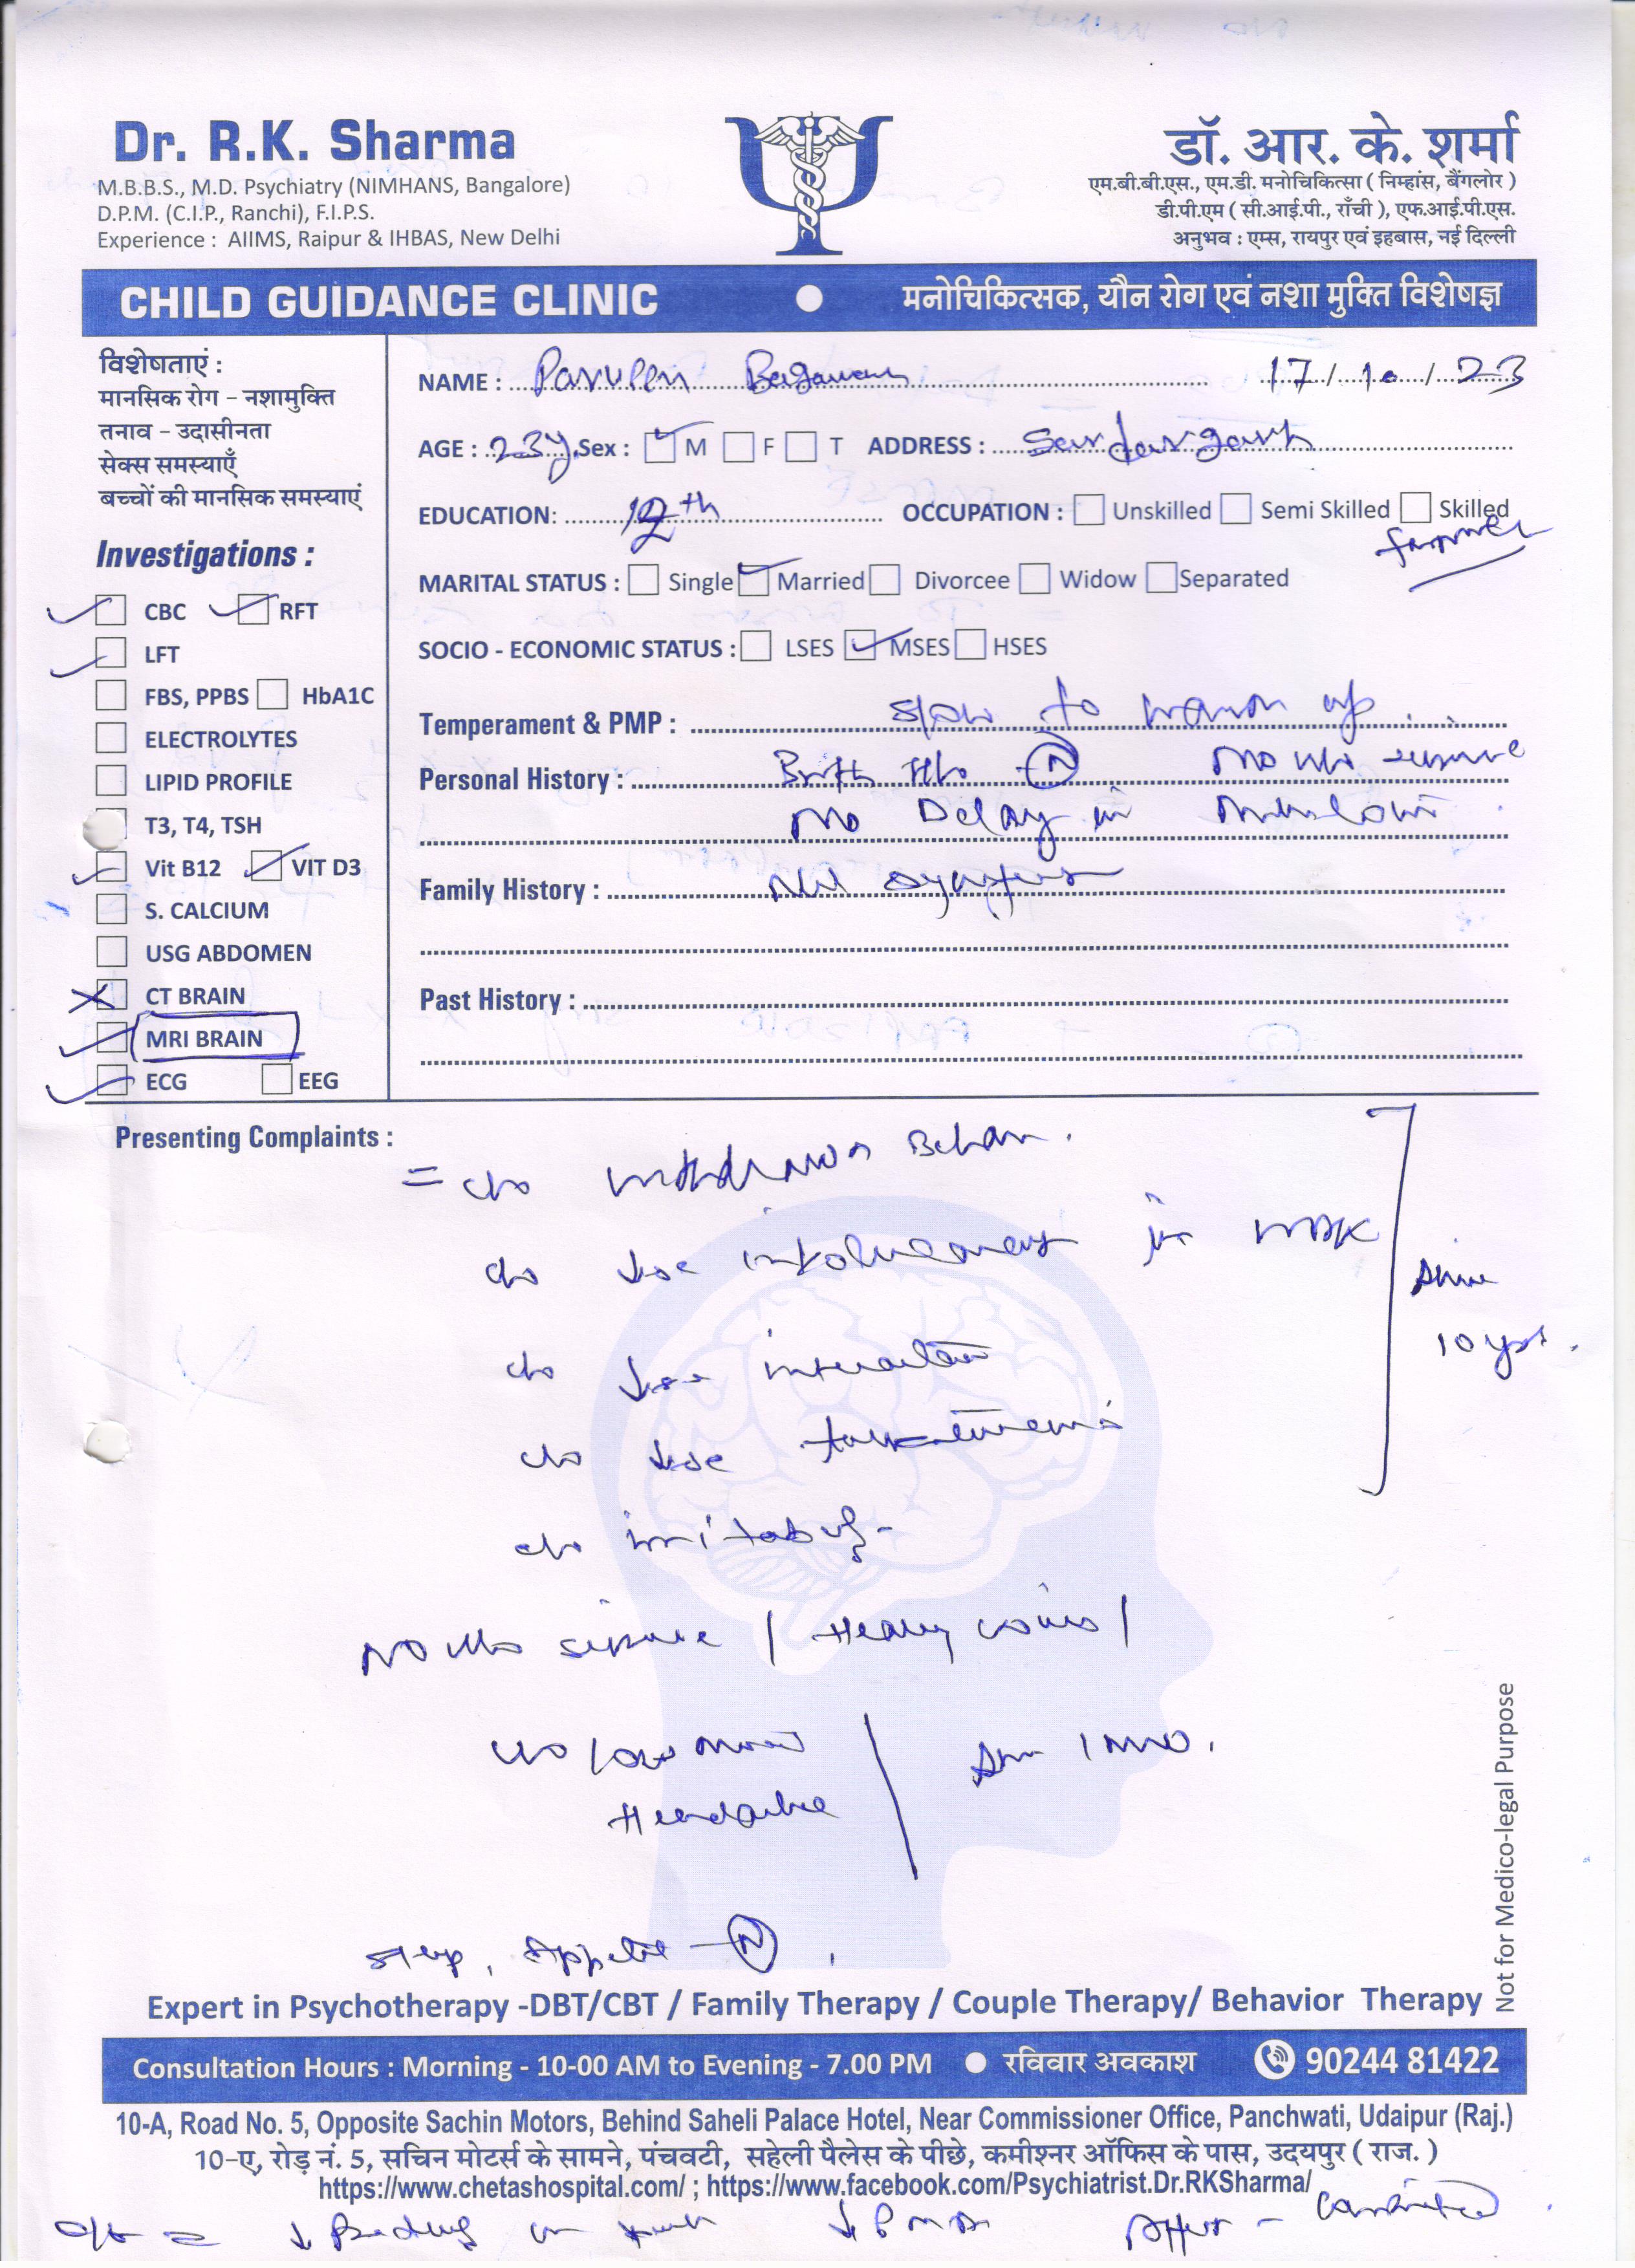 Dr. R.K. Sharma
M.B.B.S., M.D. Psychiatry (NIMHANS, Bangalore)
D.P.M. (C.I.P., Ranchi), F.I.P.S.
Experience : AIIMS, Raipur & IHBAS, New Delhi
डॉ. आर. के. शर्मा
एम.बी.बी.एस., एम.डी. मनोचिकित्सा ( निम्हांस, बैंगलोर )
डी.पी.एम ( सी.आई.पी., राँची ), एफ.आई.पी.एस.
अनुभव : एम्स, रायपुर एवं इहबास, नई दिल्ली
CHILD GUIDANCE CLINIC ● मनोचिकित्सक, यौन रोग एवं नशा मुक्ति विशेषज्ञ
विशेषताएं :
मानसिक रोग – नशामुक्ति
तनाव – उदासीनता
सेक्स समस्याएँ
बच्चों की मानसिक समस्याएं
Investigations :
CBC RFT
LFT
FBS, PPBS HbA1C
ELECTROLYTES
LIPID PROFILE
T3, T4, TSH
Vit B12 VIT D3
S. CALCIUM
USG ABDOMEN
CT BRAIN
MRI BRAIN
ECG EEG
NAME : Parveen 17/10/23
AGE : 23y Sex : M F T ADDRESS : Sardargarh
EDUCATION: 12th OCCUPATION : Unskilled Semi Skilled Skilled
farmer
MARITAL STATUS : Single Married Divorcee Widow Separated
SOCIO - ECONOMIC STATUS : LSES MSES HSES
Temperament & PMP : Slow to warm up
Personal History : Birth H/o - N No H/o seizure
No Delay in
Family History :
Past History :
Presenting Complaints :
= c/o withdrawn Behav.
c/o ↓se involvement in work
c/o ↓se interaction
c/o ↓se talkativeness
c/o irritability
since 10 yrs.
No H/o seizure / Heavy /
c/o low mood
Headache
1 mo.
Sleep, Appetite - N.
Not for Medico-legal Purpose
Expert in Psychotherapy -DBT/CBT / Family Therapy / Couple Therapy/ Behavior Therapy
Consultation Hours : Morning - 10-00 AM to Evening - 7.00 PM ● रविवार अवकाश 90244 81422
10-A, Road No. 5, Opposite Sachin Motors, Behind Saheli Palace Hotel, Near Commissioner Office, Panchwati, Udaipur (Raj.)
10-ए, रोड़ नं. 5, सचिन मोटर्स के सामने, पंचवटी, सहेली पैलेस के पीछे, कमीश्नर ऑफिस के पास, उदयपुर ( राज. )
https://www.chetashospital.com/ ; https://www.facebook.com/Psychiatrist.Dr.RKSharma/
o/e = ↓ ↓ PMA Affect - constricted